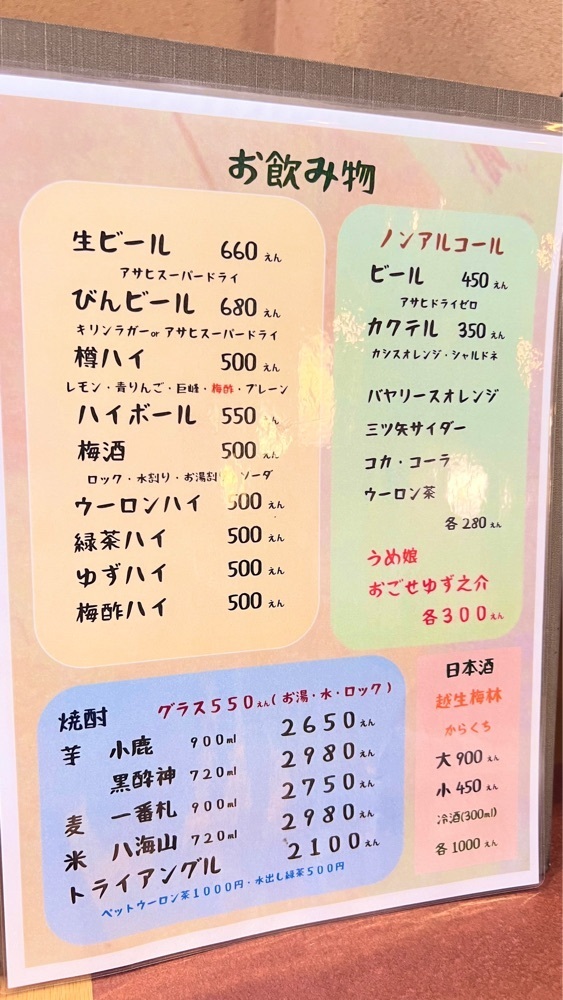 お飲み物
生ビール 660えん
アサヒスーパードライ
びんビール 680えん
キリンラガーor アサヒスーパードライ
樽ハイ 500えん
レモン・青りんご・巨峰・梅酢・プレーン
ハイボール 550えん
梅酒 500えん
ロック・水割り・お湯割り・ソーダ
ウーロンハイ 500えん
緑茶ハイ 500えん
ゆずハイ 500えん
梅酢ハイ 500えん
ノンアルコール
ビール 450えん
アサヒドライゼロ
カクテル 350えん
カシスオレンジ・シャルドネ
バヤリースオレンジ
三ツ矢サイダー
コカ・コーラ
ウーロン茶
各280えん
うめ娘
おごせゆず之介
各300えん
焼酎 グラス550えん(お湯・水・ロック)
芋 小鹿 900ml 2650えん
黒酔神 720ml 2980えん
麦 一番札 900ml 2750えん
米 八海山 720ml 2980えん
トライアングル 2100えん
ペットウーロン茶1000円・水出し緑茶500円
日本酒
越生梅林
からくち
大 900えん
小 450えん
冷酒(300ml)
各1000えん